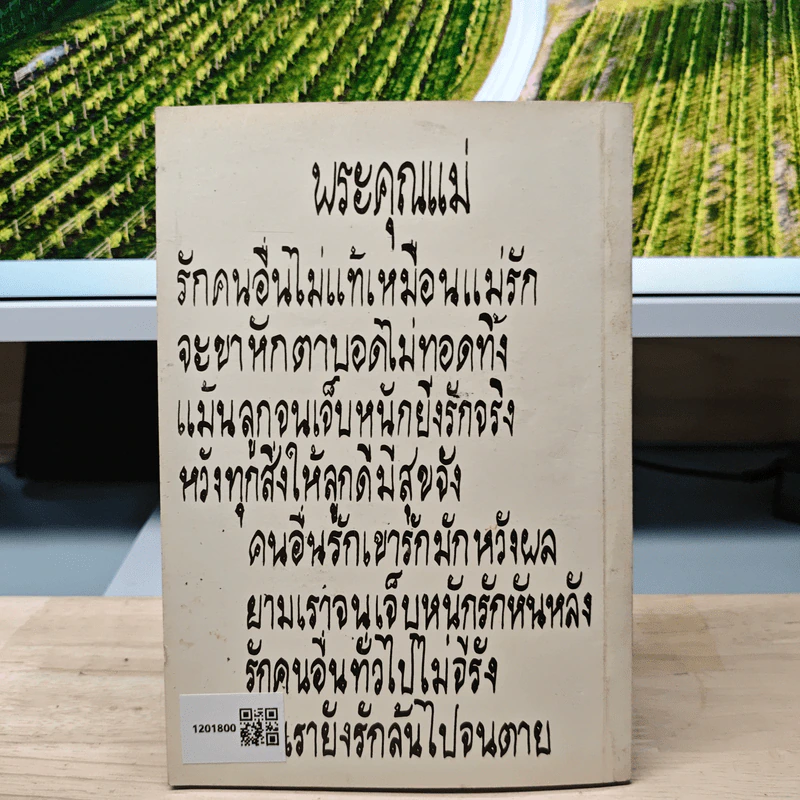 พระคุณแม่
รักคนอื่นไม่แท้เหมือนแม่รัก
จะขาหักตาบอดไม่ทอดทิ้ง
แม้นลูกจนเจ็บหนักยิ่งรักจริง
หวังทุกสิ่งให้ลูกดีมีสุขจัง
คนอื่นรักเขารักมักหวังผล
ยามเราจนเจ็บหนักรักหันหลัง
รักคนอื่นทั่วไปไม่จีรัง
เรายังรักล้นไปจนตาย
1201800